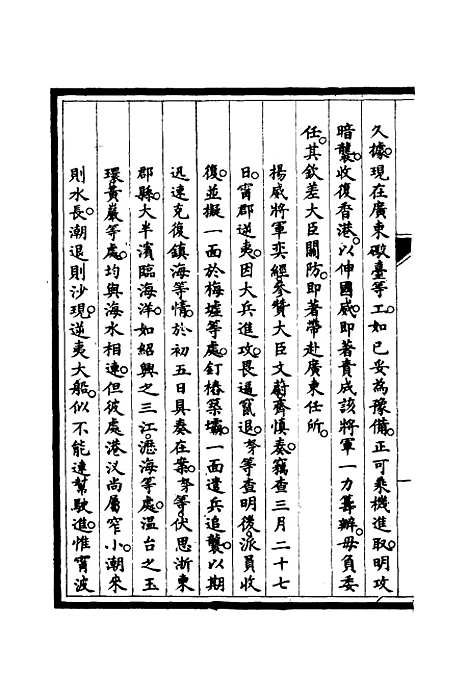 久據。現在廣東礮臺等工。如已妥為豫備。正可乘機進取。明攻
暗襲。收復香港。以伸國威。即著責成該將軍一力籌辦。毋負委
任。其欽差大臣關防。即著帶赴廣東任所。
揚威將軍奕經參贊大臣文蔚齊慎奏。竊查三月二十七
日。甯郡逆夷。因大兵進攻。畏逼竄退。努等查明後。派員收
復。並擬一面於梅墟等處。釘樁築壩。一面遣兵追襲。以期
迅速克復鎮海等情。於初五日具奏在案。努等。伏思浙東
郡縣。大半濱臨海洋。如紹興之三江。瀝海等處。温台之玉
環黃巖等處。均與海水相連。但彼處港汊尚屬窄小。潮來
則水長。潮退則沙現。逆夷大船。似不能連幫駛進。惟甯波